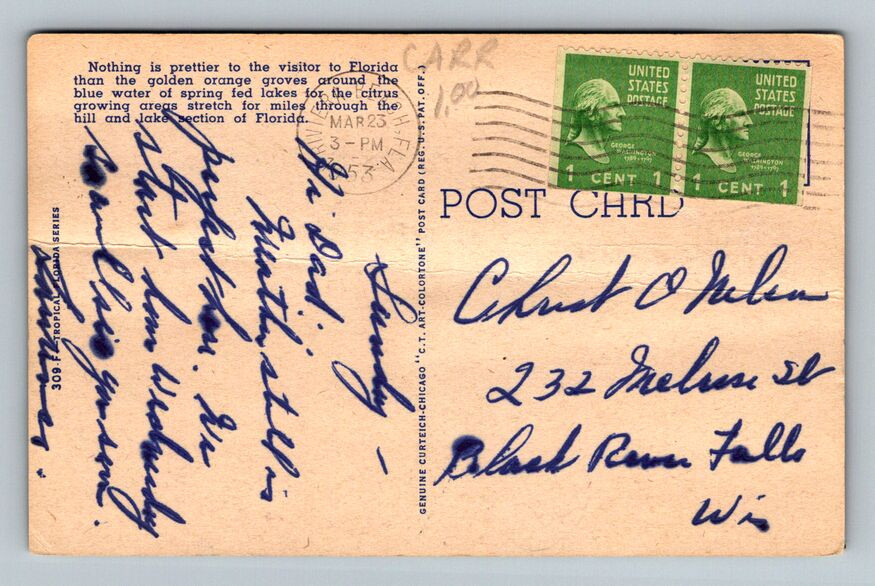 Nothing is prettier to the visitor to Florida
than the golden orange groves around the
blue water of spring fed lakes for the citrus
growing areas stretch for miles through the
hill and lake section of Florida.
CARR
1.00
MAR 23
3-PM
FLA
UNITED
STATES
POSTAGE
GEORGE
WASHINGTON
1789-1797
1 CENT 1
UNITED
STATES
POSTAGE
GEORGE
WASHINGTON
1789-1797
1 CENT 1
POST CARD
GENUINE CURTEICH-CHICAGO "C.T. ART-COLORTONE" POST CARD (REG. U.S. PAT. OFF.)
309-F-TROPICAL FLORIDA SERIES
Sunday -
Hi Dad:
Weather still is
perfect here. We
start home Wednesday
so will see you soon.
Christ O Nelson
232 Melrose St
Black River Falls
Wis